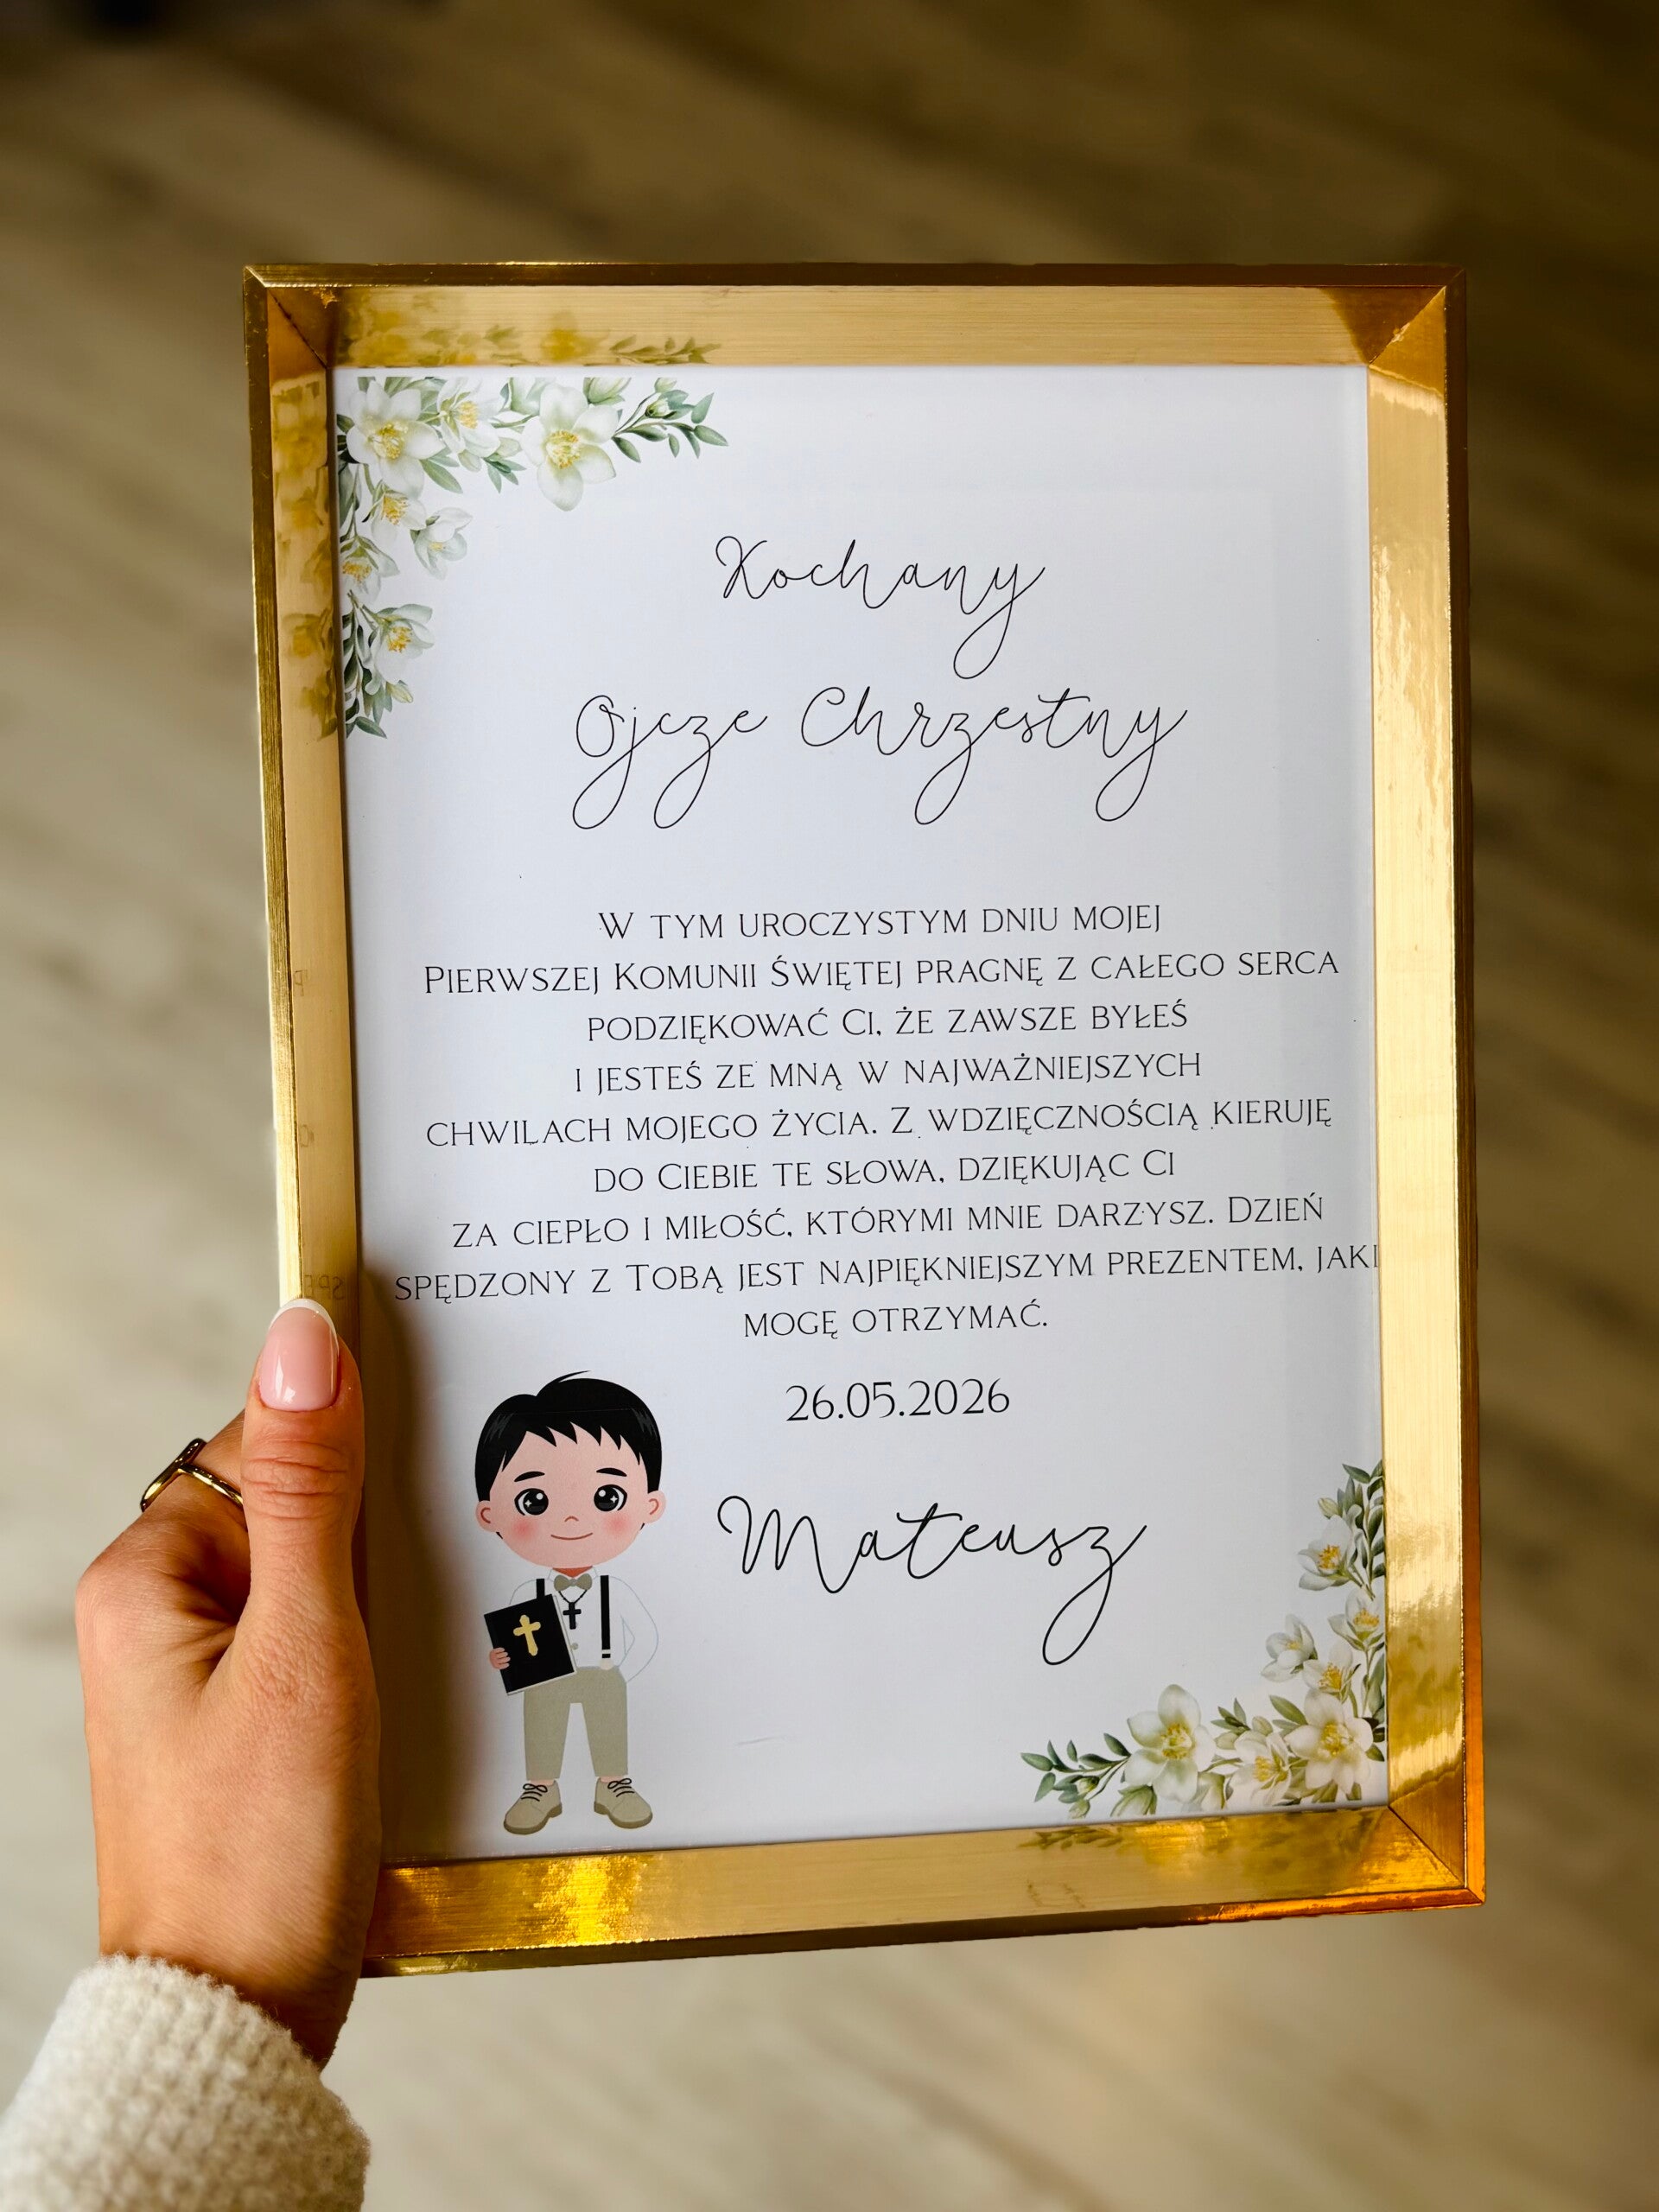 Kochany
Ojcze Chrzestny
W TYM UROCZYSTYM DNIU MOJEJ
PIERWSZEJ KOMUNII ŚWIĘTEJ PRAGNĘ Z CAŁEGO SERCA
PODZIĘKOWAĆ CI, ŻE ZAWSZE BYŁEŚ
I JESTEŚ ZE MNĄ W NAJWAŻNIEJSZYCH
CHWILACH MOJEGO ŻYCIA. Z WDZIĘCZNOŚCIĄ KIERUJĘ
DO CIEBIE TE SŁOWA, DZIĘKUJĄC CI
ZA CIEPŁO I MIŁOŚĆ, KTÓRYMI MNIE DARZYSZ. DZIEŃ
SPĘDZONY Z TOBĄ JEST NAJPIĘKNIEJSZYM PREZENTEM, JAKI
MOGĘ OTRZYMAĆ.
26.05.2026
Mateusz